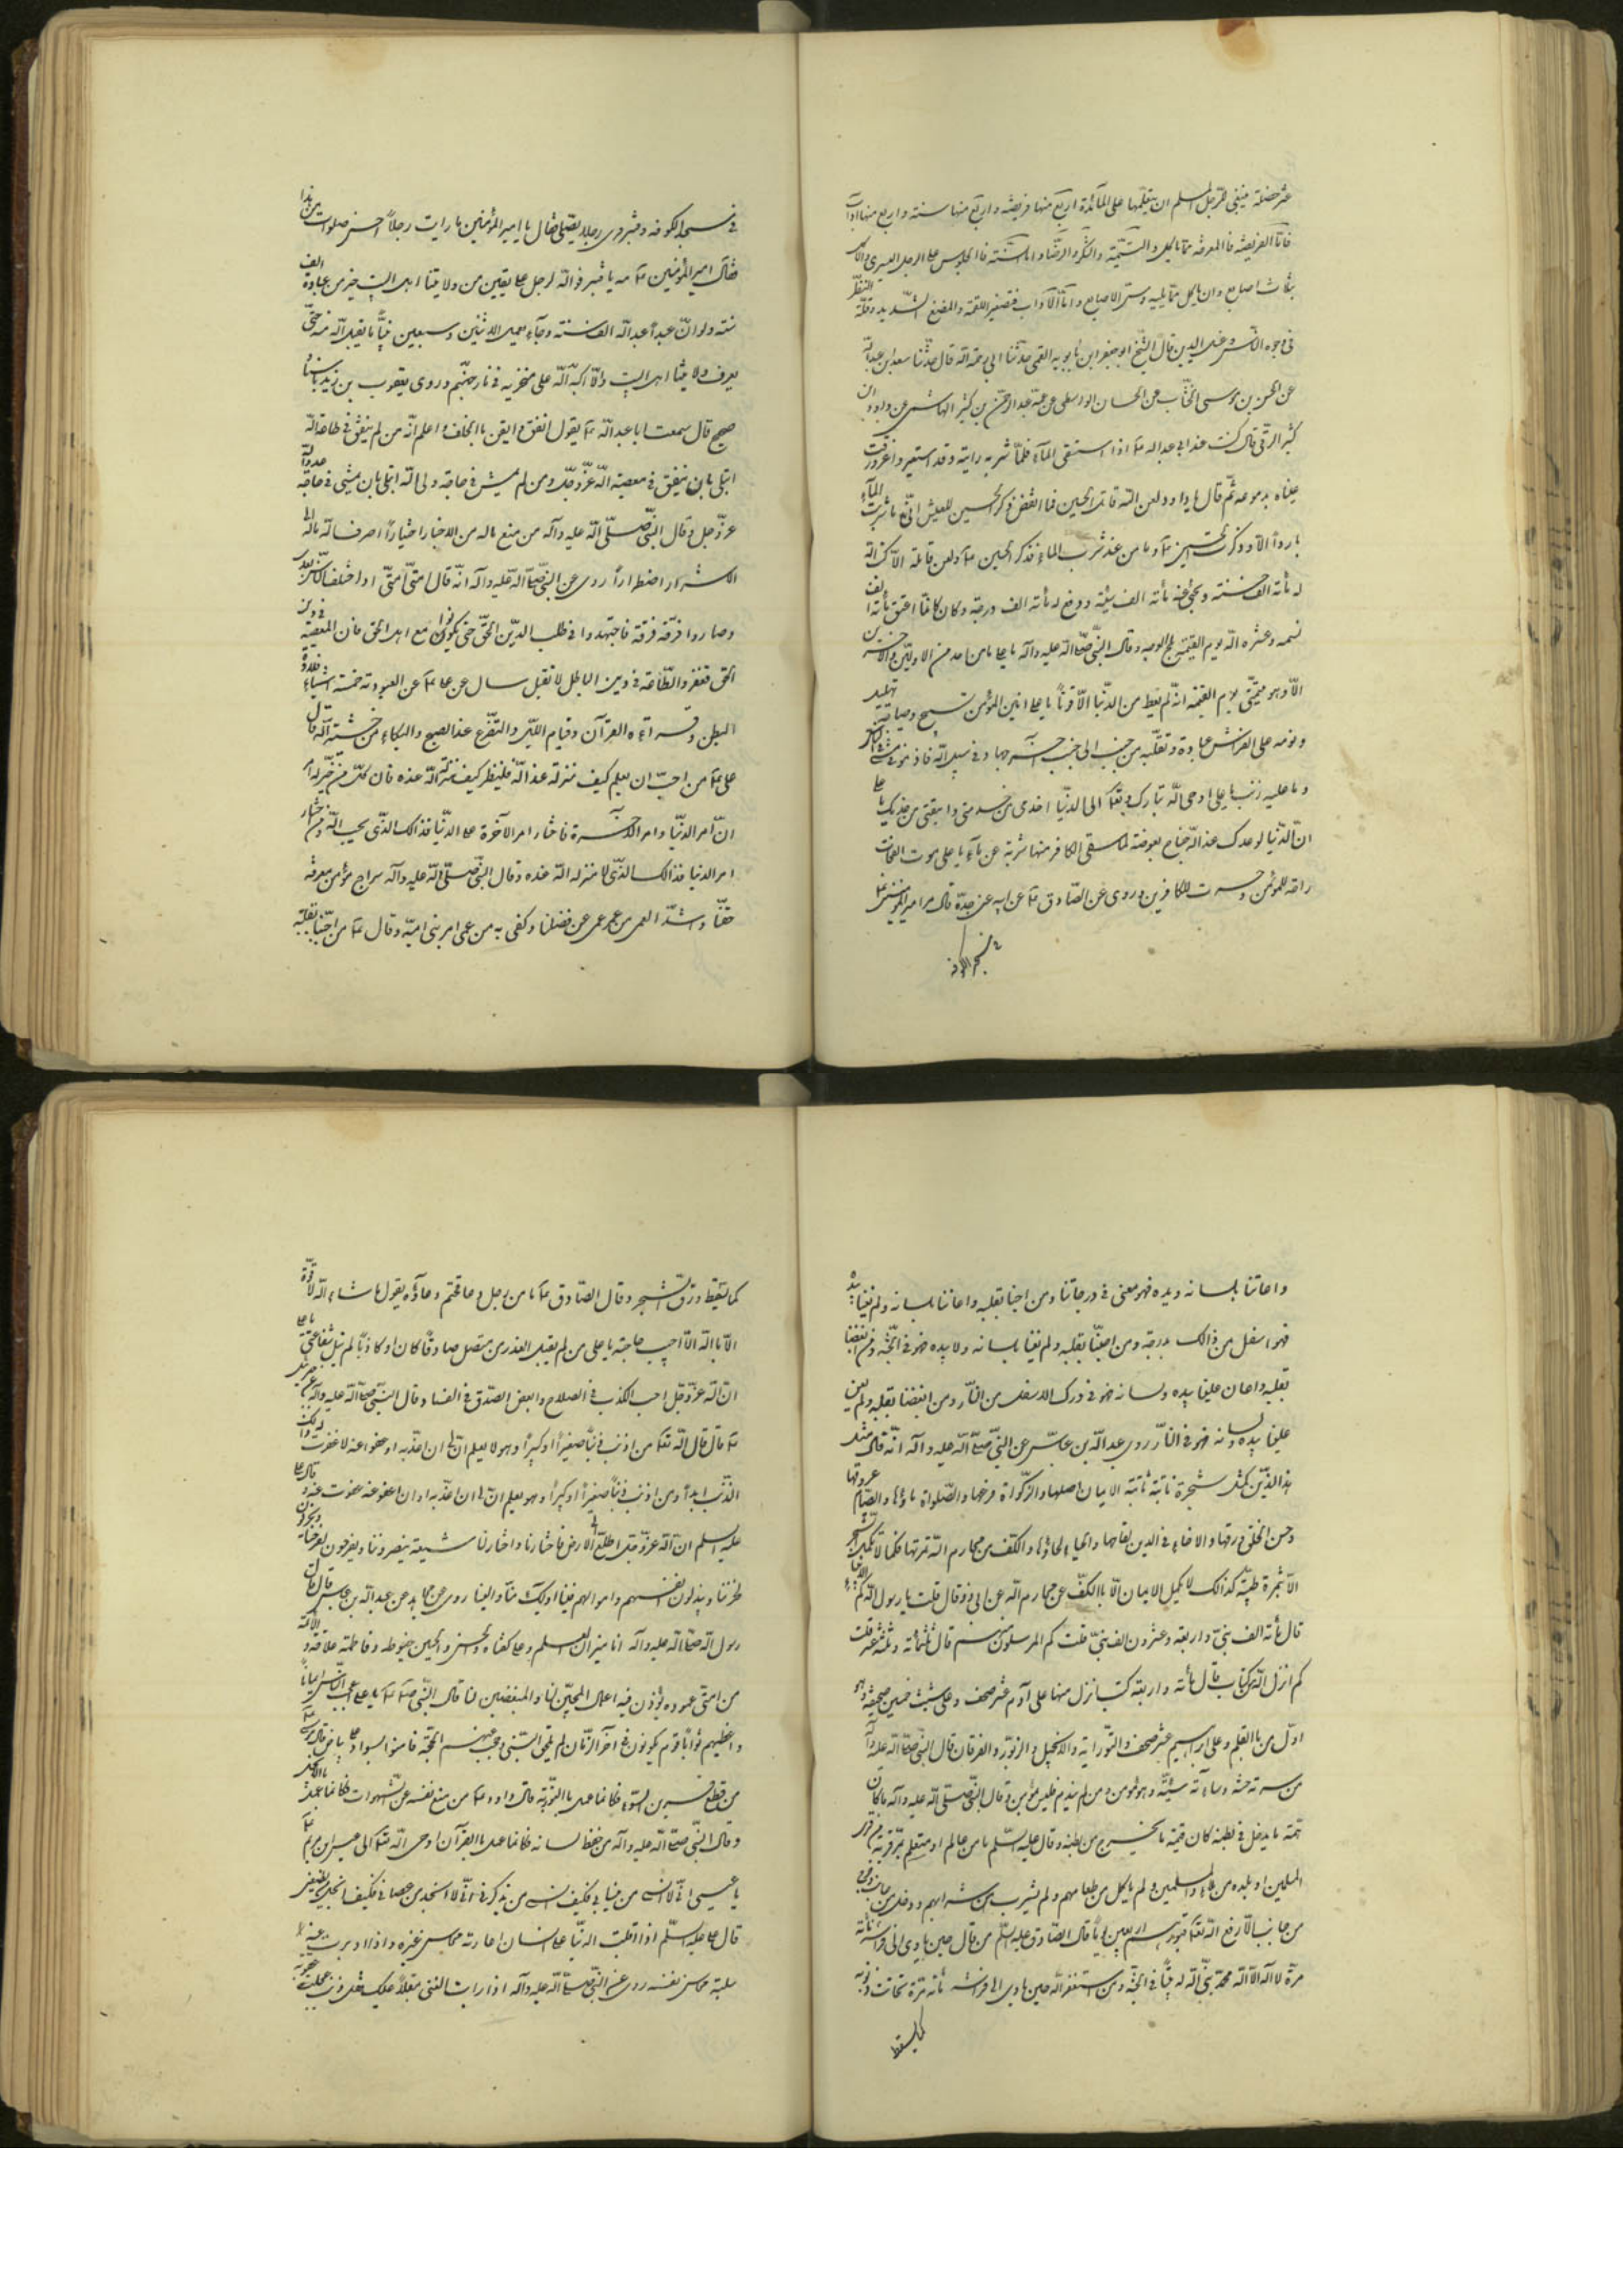 عشر خصلة ينبغى للرجل المسلم ان يتعلّمها على المآئدة اربع منها فريضة و اربع منها سنة و اربع منها اداب
فامّا الفريضة فالمعرفة بما ياكل والتّسمية والشّكر والرّضا و اما السّنّة فاالجلوس على الرجل اليسرى والاكل
بثلاث اصابع وان ياكل ممّا يليه و مسّ الاصابع و امّا الآداب فتصغير اللقمة والمضغ الشّديد وقلّة النّظر
فى وجوه الناس و غسل اليدين قال الشّيخ ابو جعفر ابن بابويه القمى حدّثنا ابى رحمة الله قال حدّثنا سعد ابن عبد الله
عن الحسن بن موسى الخشّاب عن الحسان الواسطى عن عمّه عبد الرّحمن بن كثير الهاشمى عن داود ابن
كثير الرّقى قال كنت عند ابى عبد الله ع اذا استسقى المآء فلمّا شربه رايته وقد استعبر و اغرورقت
عيناه بدموعه ثمّ قال يا داود لعن الله قاتل الحسين فما انغص ذكر الحسين للعيش انّى ما شربت المآء
باردا الّا و ذكرت الحسين ع و ما من عند شرب الماء فذكر الحسين ع و لعن قاتله الّا كتب الله
له مأته الف حسنته و محى عنه مأته الف سيّئة و رفع له مأته الف درجة و كان كانّما اعتق مأته الف
نسمه و حشره الله يوم القيمة ثلج الوجه و قال النّبىّ صلّى الله عليه وآله يا على ما من احد من الاولين والآخرين
الّا وهو يتمنّى يوم القيمه انّه لم يعط من الدّنيا الّا قوتاً يا على انين المؤمن تسبيح وصياحه تهليل
و نومه على الفراش عبادة و تقلّبه من جنب الى جنب جهاد فى سبيل الله فان عوفى مشى فى الناس
و ما عليه ذنب يا على اوحى الله تبارك و تعا الى الدنّيا اخدمى من خدمنى و اتعبى من خدمك يا على
انّ الدّنيا لو عدلت عند الله جناح بعوضة لما سقى الكافر منها شربة من مآء يا على موت الفجائت
راحة للمؤمن و حسرت للكافرين و روى عن الصّادق ع عن ابيه عن جدّه قال مر امير المؤمنين ع
فى مسجد الكوفة
فى مسجد الكوفه و قنبر فراى رجلا يصلّى فقال يا امير المؤمنين ما رايت رجلاً احسن صلوات من هذا
فقال امير المؤمنين ع مه يا قنبر فو الله لرجل على يقين من ولايتنا اهل البيت خير من عبادة الف
سنته و لو انّ عبداً عبد الله الف سنته و جآء بعمل الاثنين و سبعين نبيّاً ما يقبل الله منه حتّى
يعرف ولايتنا اهل البيت و الّا اكبّه الله على منخريه فى نار جهنّم و روى يعقوب بن زيد باسناد
صحيح قال سمعت ابا عبد الله ع يقول انفق و ايقن باالخلف و اعلم انّه من لم ينفق فى طاعة الله
ابتلى بان ينفق فى معصية الله عزّ و جلّ و من لم يمش فى حاجة ولى الله ابتلى بان يمشى فى حاجة عدوّ الله
عزّ و جل و قال النّبىّ صلّى الله عليه وآله من منع ماله من الاخيار اختياراً صرف الله ماله الى
الاشرار اضطراراً روى عن النّبىّ صلّى الله عليه وآله انّه قال امّتى امّتى اذا اختلف النّاس بعدى
وصاروا فرقة فرقة فاجتهدوا فى طلب الدّين الحقّ حتى يكونوا مع اهل الحق فان المعصية فى دين
الحق تغفر و الطّاعة فى دين الباطل لا تقبل سال عن على ع عن العبودية خمسة اشياء خلاء
البطن و قراءة القرآن و قيام الليل و التضّرع عند الصبح و البكاء من خشية الله قال
على ع من احبّ ان يعلم كيف منزلته عند الله فلينظر كيف منزلة الله عنده فان كلّ من خيّر له امران
امر الدنيا و امر الآخرة فاختار امر الآخرة على الدّنيا فذالك الّذى يحب الله و من اختار
امر الدنيا فذالك الذّى لا منزله الله عنده و قال النبّى صلّى الله عليه وآله سراج مؤمن معرفة
حقّنا و اشدّ العمى من عمى عن فضلنا و كفى به من عمى امر بنى اميّة و قال ع من احبّنا بقلبه
و اعاننا بلسانه و يده فهو معنى فى درجاتنا و من احبنا بقلبه و اعاننا بلسانه و لم يعنّا بيده
فهو اسفل من ذالك بدرجة و من احبّنا بقلبه و لم يعنّا بلسانه و لا بيده فهو فى الجّنه و من ابغضنا
بقلبه و اعان علينا بيده و لسانه فهو فى درك الاسفل من النّار و من ابغضنا بقلبه و لم يعن
علينا بيده و لسانه فهو فى النّار روى عبد الله بن عبّاس عن النبىّ صلّى الله عليه و آله انّه قال مثل
هذ الدّين كمثل شجرة نابتة ثابتة الايمان اصلها و الزّكواة فرعها و الصّلواة ماؤها و الصّيام عروقها
و حسن الخلق ورقها و الاخاء فى الدين لقاحها و الحياء لحاؤها و الكفّ عن محارم الله ثمرتها فكما لا تكمل الشجر
الّا بثمرة طيّبة كذالك لا يكمل الايمان الّا باالكفّ عن محارم الله عن ابى ذر قال قلت يا رسول الله كم الانبياء
قال مأته الف نبىّ و اربعة و عشرون الف نبىّ قلت كم المرسلون منهم قال ثلثمأته و ثلثه عشر قلت
كم انزل الله من كتاب قال مأته و اربعة كتب انزل منها على آدم عشر صحف و على شيث خمسين صحيفة و هو
اوّل من خطّ باالقلم و على ابراهيم عشر صحف و التّوراية و الانجيل و الزبور و الفرقان قال النبىّ صلّى الله عليه وآله
من سرته حسنته و سآءته سيئته و هو مؤمن و من لم يندم فليس بمؤمن و قال النّبى صلّى الله عليه و آله ما كان
همّته ما يدخل فى بطنه كان قيمته ما يخرج من بطنه و قال عليه السّلم ما من عالم او متعلّم يمرّ قرية من قرى
المسلمين او بلدة من بلاد المسلمين و لم ياكل من طعامهم و لم يشرب من شرابهم و دخل من جانب و خرج
من جانب الّا رفع الله تعا عذاب قبورهم اربعين يوماً قال الصّادق عليه السّلم من قال حين ياوى الى فراشه مأته
مرّة لا اله الّا الله بنى الله له بيتاً فى الجنّة و من استغفر الله حين ياوى الى فراشه مأته مرّة تحاتت ذنوبه
كما يسقط
كما يسقط ورق الشّجر و قال الصّادق ع ما من رجل دعا فختم دعاؤه يقول ما شاء الله لا قوّة
الّا باالله الّا اجيب حاجته يا على من لم يقبل العذر من متنصل صادقاً كان او كاذبّاً لم ينل شفاعتى يا على
انّ الله عزّ و جلّ احب الكذب فى الصلاح و ابغض الصّدق فى الفساد و قال النبّى صلّى الله عليه وآله عن جبرئيل
ع قال قال الله تعا من اذنب ذنبّاً صغيراً او كبيراً و هو لا يعلم انّ لى ان اعذّبه او عفو عنه لا غفرت له ذلك
الذّنب ابداً و من اذنب ذنبّاً صغيراً او كبيراً و هو يعلم انّ لى ان اعذّبه او ان اعفو عنه عفوت عنه و قال على
عليه السلم انّ الله عزّ و جلّ اطلع الى الارض فاختارنا و اختار لنا شيعة ينصروننا و يفرحون لفرحنا و يحزنون
لحزننا و يبذلون انفسهم و اموالهم فينا اوليك منّا و الينا روى عن مجاهد عن عبد الله بن عباس قال قال
رسول الله صلّى الله عليه و آله انا ميزان العلم و على كفتاه و الحسن و الحسين خيوطه و فاطمة علاقته و الائمّة
من امّتى عموده يوزن فيه اعمال المحبّين لنا و المبغضين لنا قال النّبى ص يا على اعجب النّاس ايماناً
و اعظمهم ثواباً قوم يكونون فى آخر الزّمان لم يلحق النّبى و حجب عنهم الحجّة فامنوا بسواد على بياض قال موسى ع
من قطع قرين السّوء فكانما عمل باالتّورية قال داود ع من منع نفسه عن الشّهوات فكانما عمل بالانجيل
و قال النّبى صلّى الله عليه و آله من حفظ لسانه فكانما عمل باالقرآن اوحى الله تعا الى عيسى ابن مريم ع
يا عيسى انّى لا انسى من ينسانى فكيف انسى من يذكرنى انّى لا ابخل من عصانى فكيف ابخل من يطيعنى
قال على عليه السلّم اذا اقبلت الدنّيا على انسان اعارته محاسن غيره و اذا ادبرت عنه
سلبته محاسن نفسه روى عن النّبى صلّى الله عليه و آله اذا رايت الغنى مقبلاً عليك فقل ذنب عجلت عقوبته